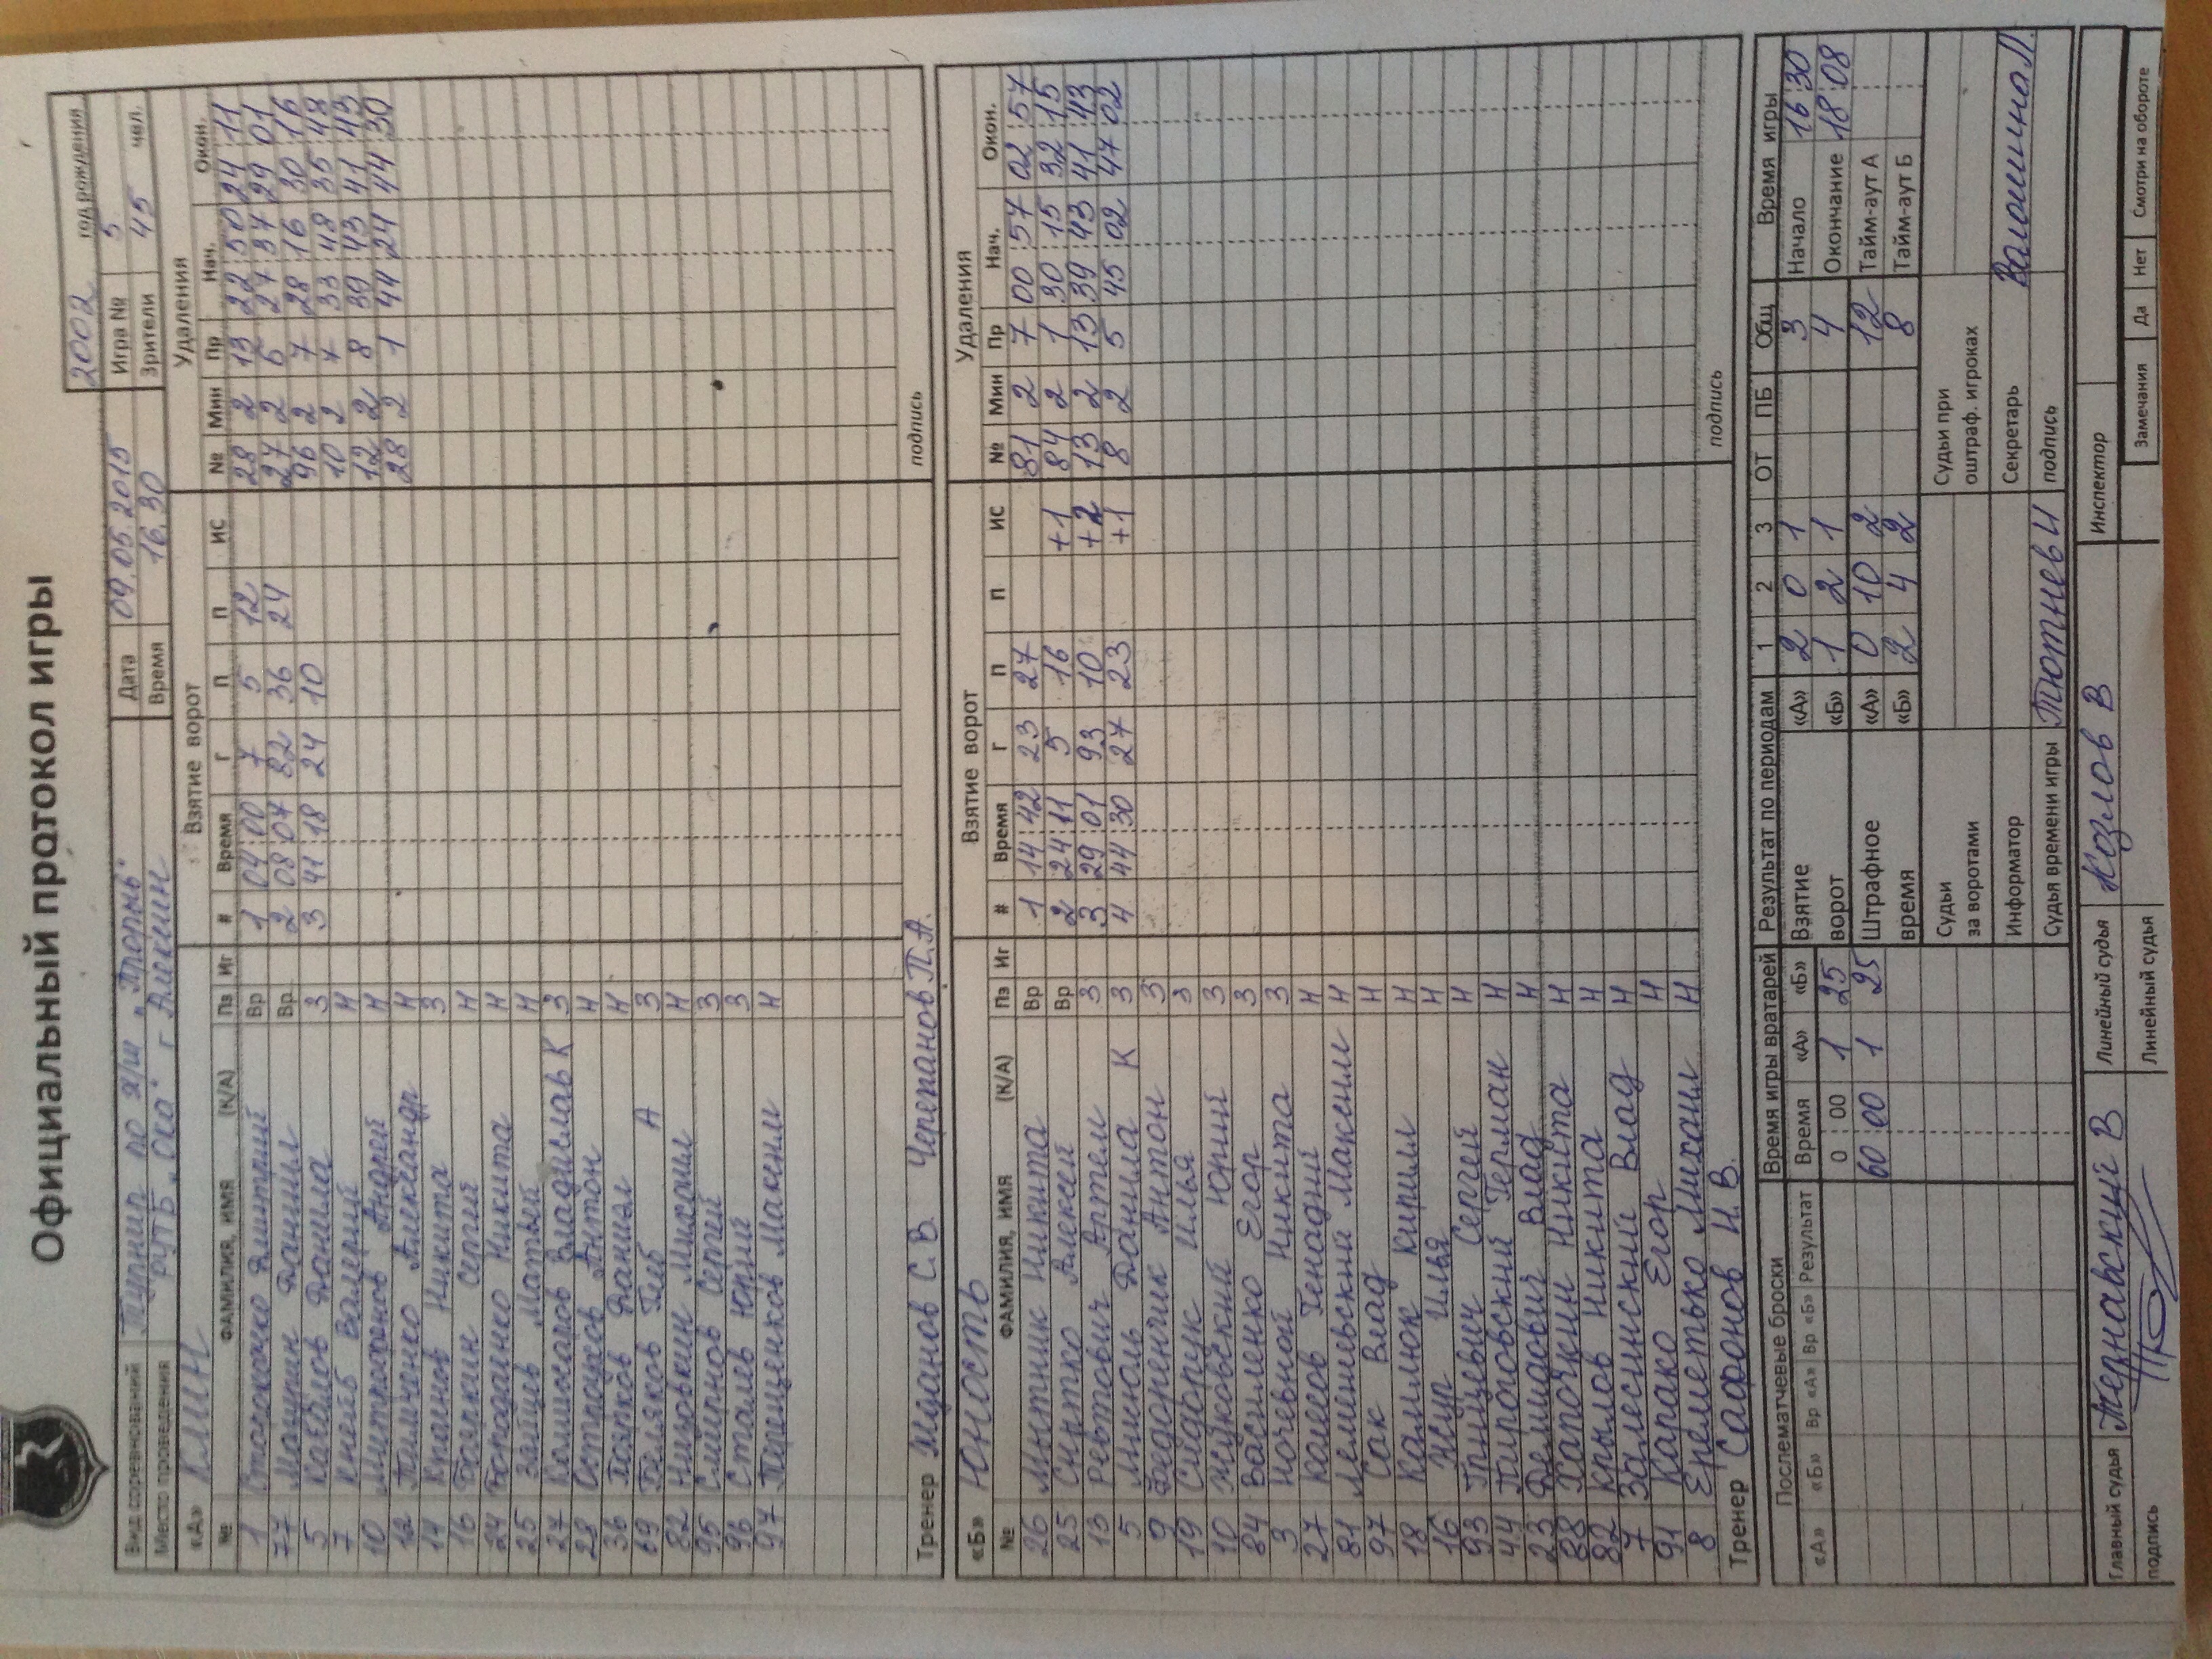 Официальный протокол игры
2002 год рождения
Вид соревнований Турнир по х/ш Дата 09.05.2015 Игра № 5
Место проведения РУТБ "Ока" г Алексин Время 16.30 Зрители 45 чел.
«А» КЛИН Взятие ворот Удаления
№ ФАМИЛИЯ, ИМЯ (К/А) Пз Иг # Время Г П П ИС № Мин Пр Нач. Окон.
1 Дмитрий Вр 1 04:00 7 5 12 28 2 13 22:50 24:11
77 Мазурин Даниил Вр. 2 08:07 82 36 24 27 2 6 27:37 29:01
5 Данила З 3 41:18 24 10 96 2 7 28:16 30:16
7 Валерий Н 10 2 7 33:48 35:48
10 Митрофанов Андрей Н 12 2 8 39:43 41:43
12 Тимченко Александр Н 28 2 1 44:24 44:30
14 Краснов Никита З
16 Бояркин Сергей Н
24 Бородаенко Никита Н
25 Зайцев Матвей Н
27 Комиссаров Владислав К З
28 Остроухов Антон Н
36 Даниил Н
69 Беляков Глеб А З
82 Михаил Н
95 Смирнов Сергей З
96 Сталев Юрий З
97 Терещенков Максим Н
Тренер С.В. Черепанов П.А. подпись
«Б» Юность Взятие ворот Удаления
№ ФАМИЛИЯ, ИМЯ (К/А) Пз Иг # Время Г П П ИС № Мин Пр Нач. Окон.
26 Мытник Никита Вр 1 14:42 23 27 81 2 7 00:57 02:57
25 Снытко Алексей Вр 2 24:11 5 16 +1 84 2 1 30:15 32:15
13 Ревтович Артем З 3 29:01 93 10 +2 13 2 13 39:43 41:43
5 Данила К З 4 44:30 27 23 +1 8 2 5 45:02 47:02
9 Федоренчик Антон З
19 Сидорук Илья З
10 Жуковский Юрий З
84 Василенко Егор З
3 Кочевной Никита З
27 Колесов Генадий Н
81 Лемешевский Максим Н
97 Сак Влад Н
18 Камлюк Кирилл Н
16 Жур Илья Н
93 Гринцевич Сергей Н
44 Пироговский Герман Н
23 Демидович Влад Н
88 Хапочкин Никита Н
82 Крылов Никита Н
7 Залесинский Влад Н
91 Карако Егор Н
8 Ереметько Михаил Н
Тренер Сафонов И.В. подпись
Послематчевые броски Время игры вратарей Результат по периодам 1 2 3 ОТ ПБ Общ Время игры
«А» «Б» Вр «А» Вр «Б» Результат Время «А» «Б» Взятие «А» 2 0 1 3 Начало 16:30
0 : 00 1 25 ворот «Б» 1 2 1 4 Окончание 18:08
60:00 1 25 Штрафное «А» 0 10 2 12 Тайм-аут А
время «Б» 2 4 2 8 Тайм-аут Б
Судьи за воротами Судьи при оштраф. игроках
Информатор Секретарь Волошина Л.
Судья времени игры Тютнев И подпись
Главный судья Тернавский В Линейный судья Козлов В Инспектор
подпись Линейный судья Замечания Да Нет Смотри на обороте